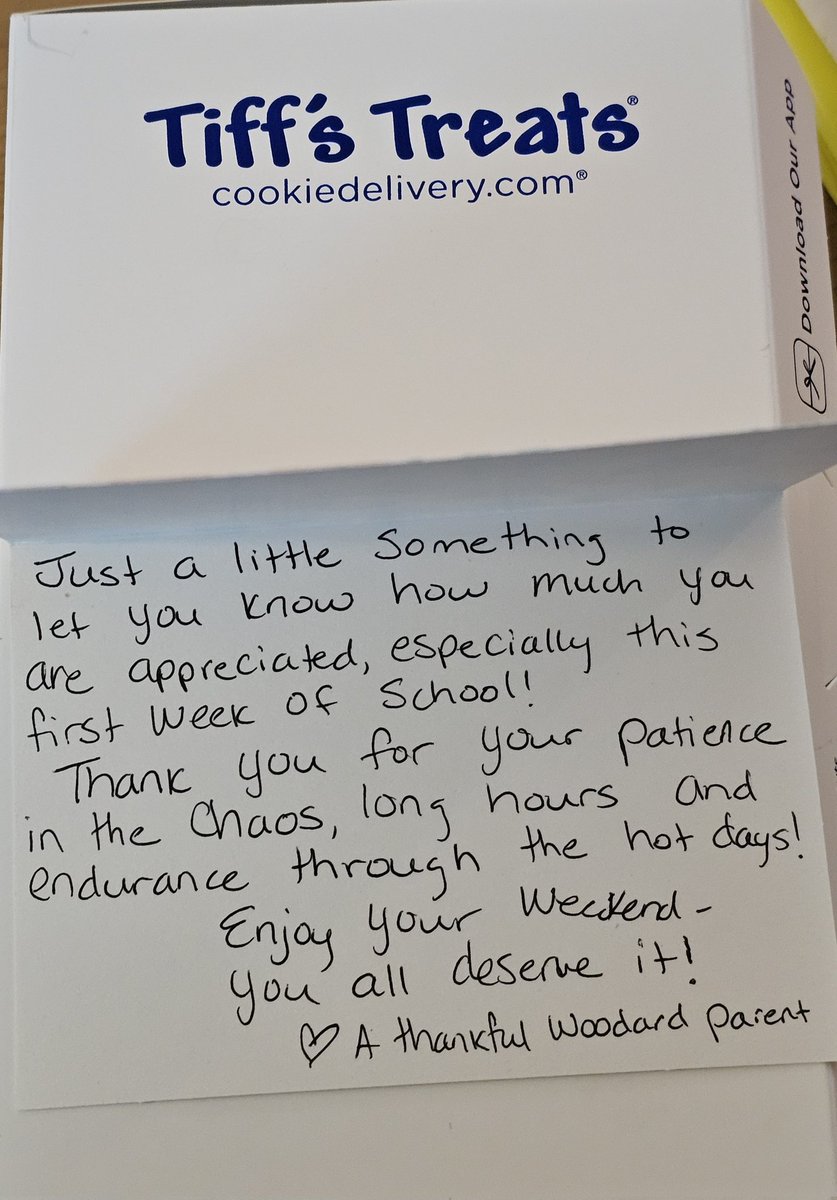 Tiff's Treats®
cookiedelivery.com®
Download Our App
Just a little something to
let you know how much you
are appreciated, especially this
first week of School!
Thank you for your patience
in the Chaos, long hours and
endurance through the hot days!
Enjoy your Weekend-
you all deserve it!
♡ A thankful Woodard parent